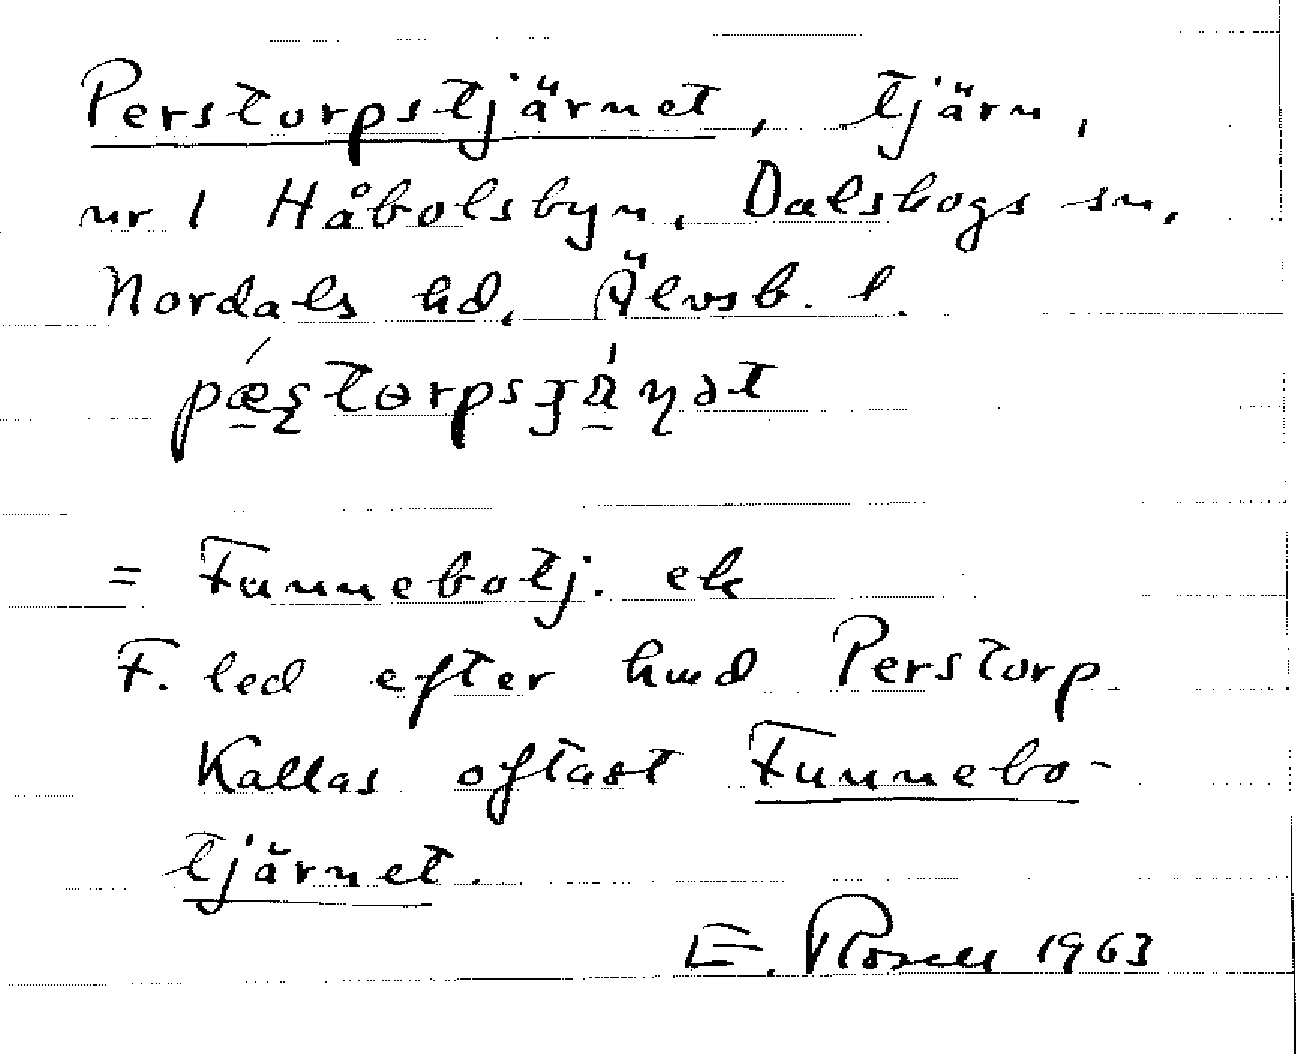 Perstorpstjärnet, tjärn,
nr 1 Håbolsbyn, Dalskogs sn,
Nordals hd, Älvsb. l.
= Funnebotj. ek
F. led efter hmd Perstorp
Kallas oftast Funnebo-
tjärnet.
E. Rosell 1963